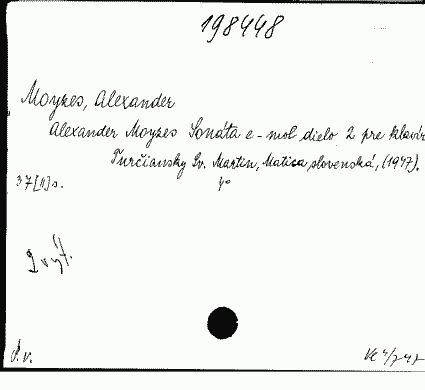 198448
Moyzes, Alexander
Alexander Moyzes Sonáta e-mol dielo 2 pre klavír
Turčiansky Sv. Martin, Matica slovenská, (1947).
37[II]s. 4°
2 výt.